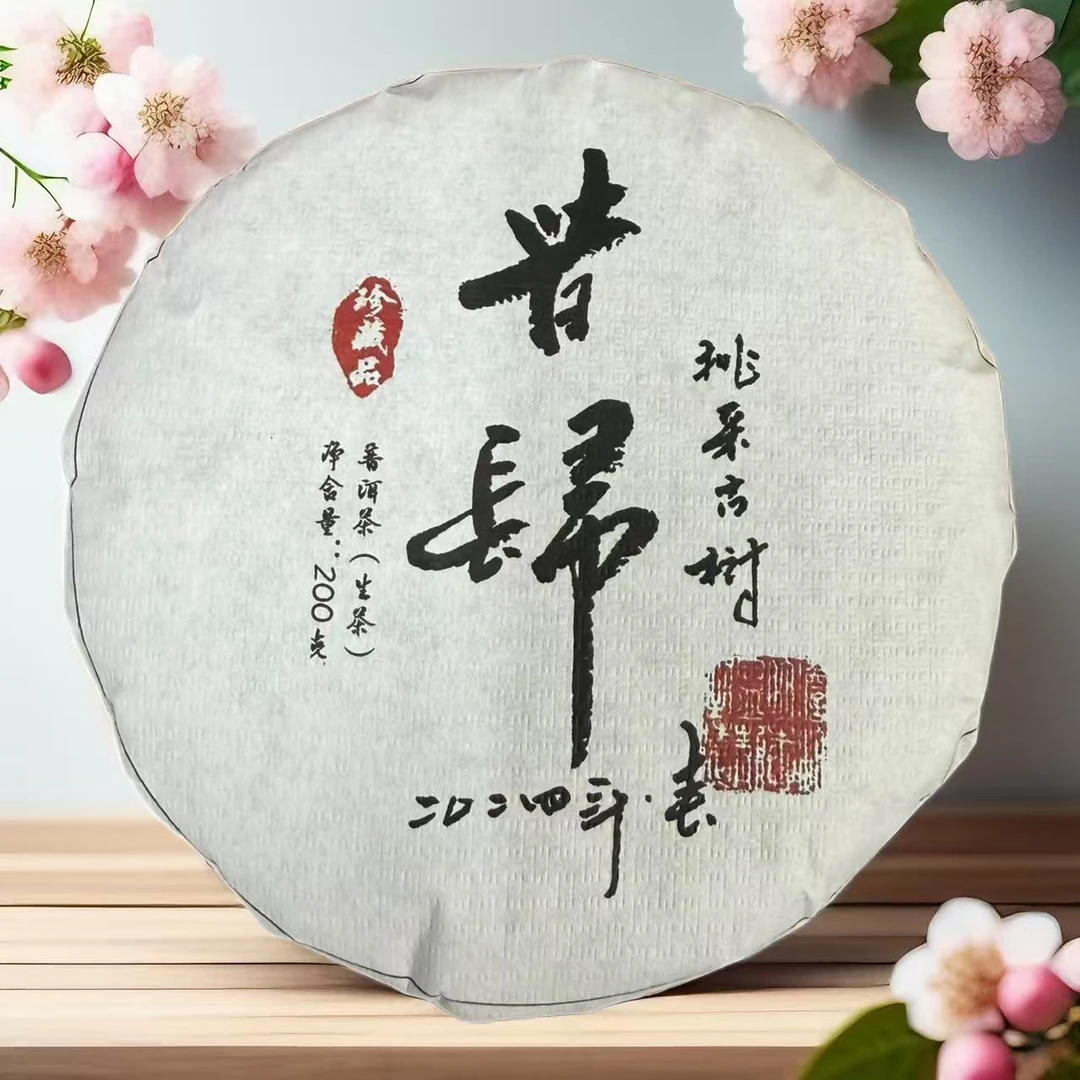 昔歸
挑采古树
二〇二四年·春
珍藏品
普洱茶(生茶)
净含量：200克